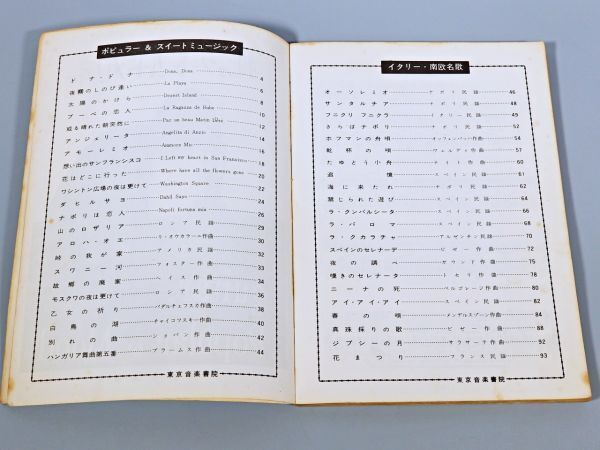 ポピュラー & スイートミュージック
ドナ・ドナ Dona, Dona 4
夜霧のしのび逢い La Playa 6
太陽のかけら Desert Island 8
ブーベの恋人 La Ragazza de Bube 10
或る晴れた朝突然に Par un beau Matin 12
アンジェリータ Angelita di Anzio 14
アモーレミオ Amamore Mio 16
想い出のサンフランシスコ I Left my heart in San Francisco 18
花はどこに行った Where have all the flowers gone 20
ワシントン広場の夜は更けて Washington Square 22
ダヒルサヨ Dahil Sayo 24
ナポリは恋人 Napoli fortuna mia 26
山のロザリア ロシア民謡 29
アロハ・オエ リ・オウカラーニ作曲 30
峠の我が家 アメリカ民謡 32
スワニー河 フォスター作曲 33
故郷の廃家 ヘイス作曲 34
モスクワの夜は更けて ロシア民謡 36
乙女の祈り バダルチェフスカ作曲 38
白鳥の湖 チャイコフスキー作曲 40
別れの曲 ショパン作曲 42
ハンガリア舞曲第五番 ブラームス作曲 44
東京音楽書院
イタリー・南欧名歌
オーソレミオ ナポリ民謡 46
サンタルチア ナポリ民謡 48
フニクリ フニクラ イタリー民謡 49
さらばナポリ ナポリ民謡 52
ホフマンの舟唄 オッフェンバッハ作曲 54
乾杯の唄 ヴェルディ作曲 57
たゆとう小舟 ナイト作曲 60
追憶 スペイン民謡 61
海に来たれ ナポリ民謡 62
禁じられた遊び スペイン民謡 64
ラ・クンパルシータ スペイン民謡 66
ラ・パロマ スペイン民謡 68
ラ・クカラチャ アルゼンチン民謡 70
スペインのセレナーデ ビゼー作曲 72
夜の調べ グウンド作曲 75
嘆きのセレナータ トセリ作曲 78
ニーナの死 ペルゴレージ作曲 80
アイ・アイ・アイ スペイン民謡 82
春の唄 メンデルスゾーン作曲 84
真珠採りの歌 ビゼー作曲 88
ジプシーの月 サラサーテ作曲 92
花まつり フランス民謡 93
東京音楽書院